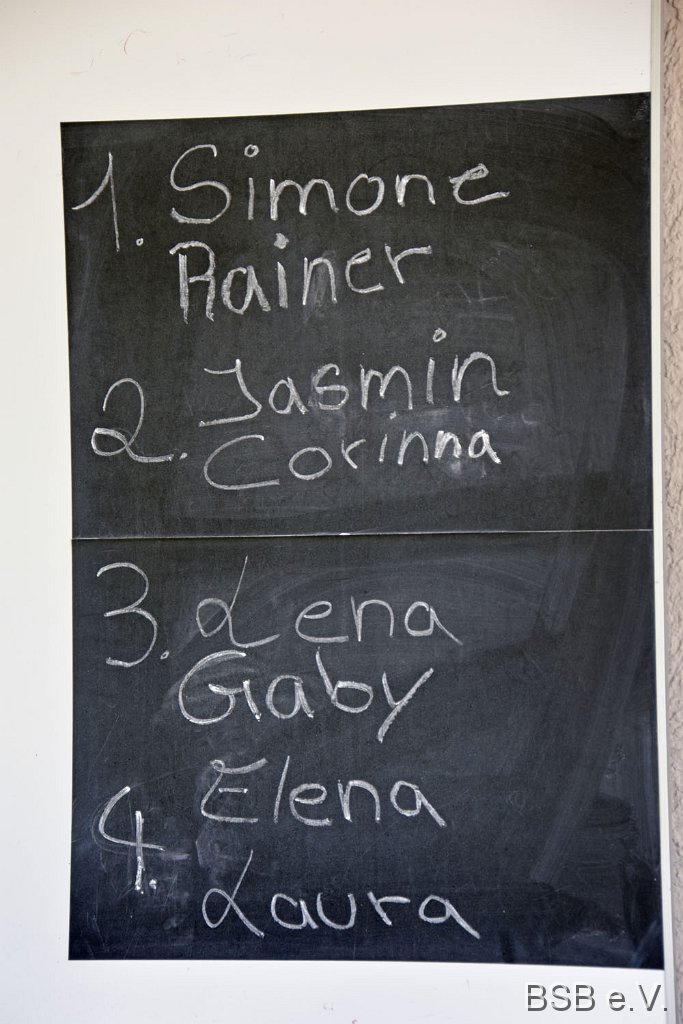 1. Simone
Rainer
2. Jasmin
Corinna
3. Lena
Gaby
4. Elena
Laura
BSB e.V.